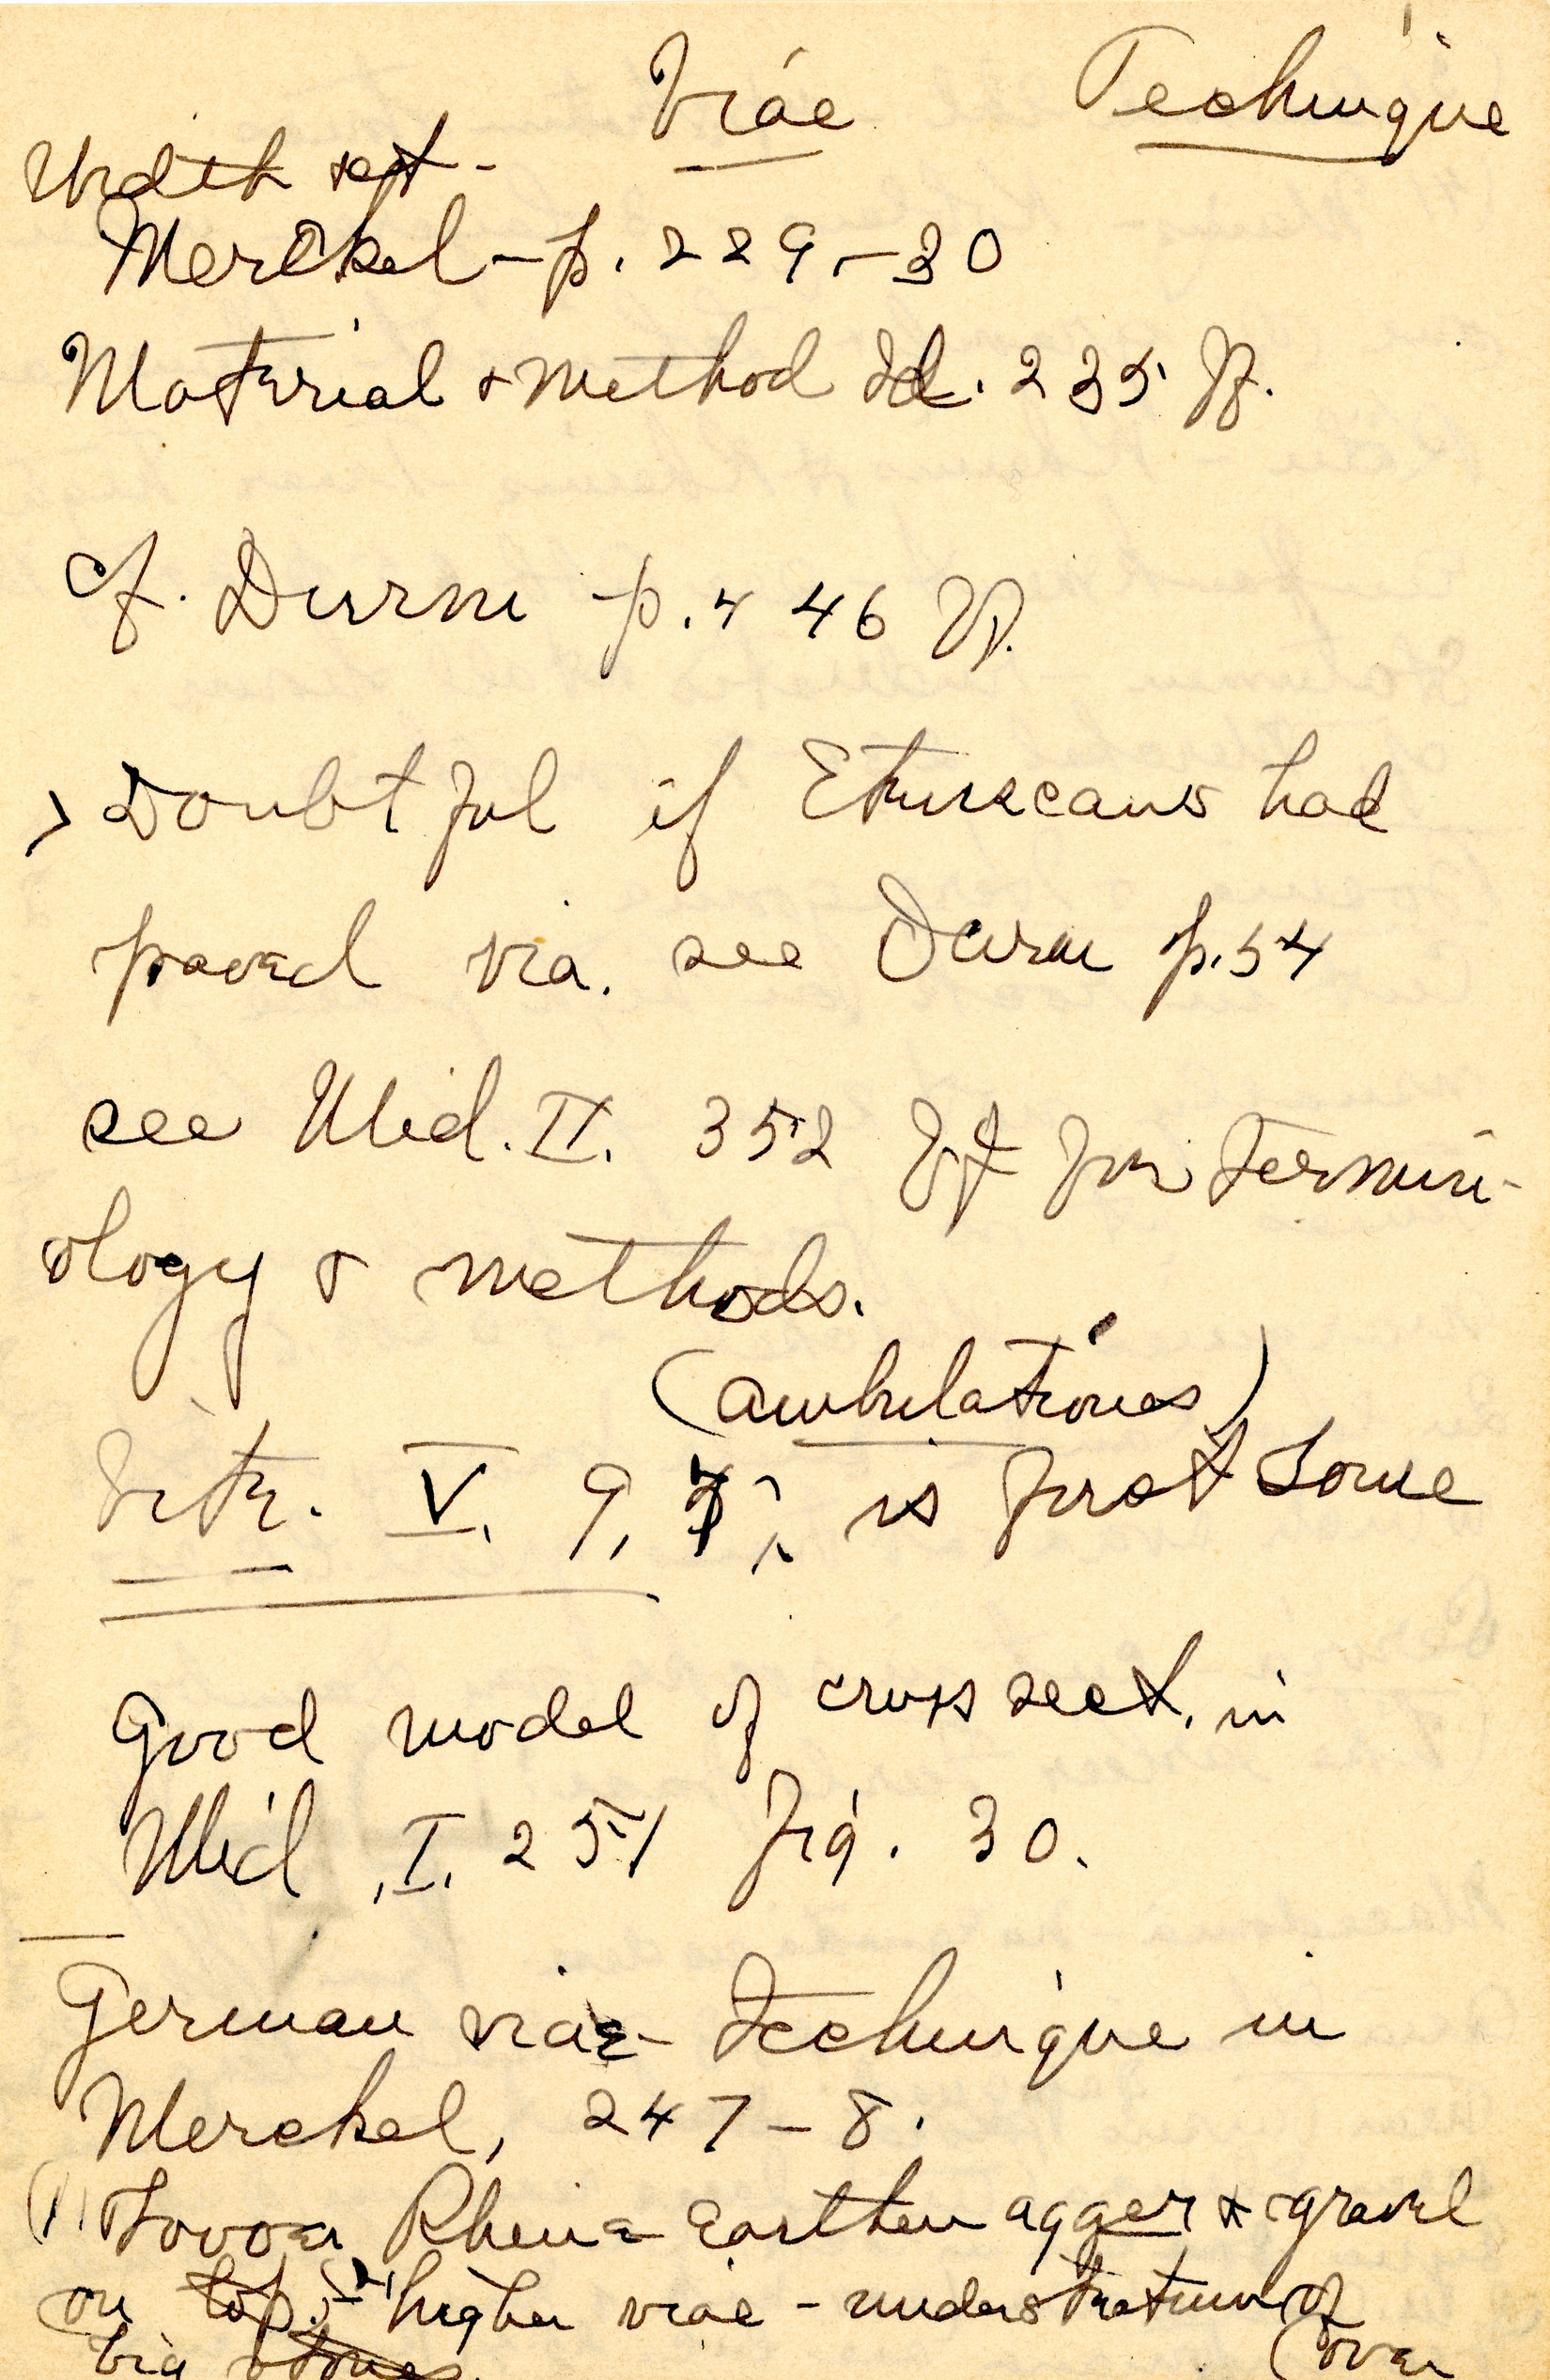 Viae Technique
Width sect -
Merckel - p. 229 - 30
Material & Method Id. 235 ff.
cf. Durm p. 446 ff.
> Doubtful if Etruscans had
paved via. see Durm p. 54
see Mid. II. 352 ff for Termin-
ology & methods.
(ambulationes)
Vitr. V. 9, 7, is first some
Good model of cross sect. in
Mid. I. 251 fig. 30.
German viae technique in
Merckel, 247 - 8.
(1) Lower Rhine Earthen agger & gravel
on top. higher viae - understratum of
big stones. (over